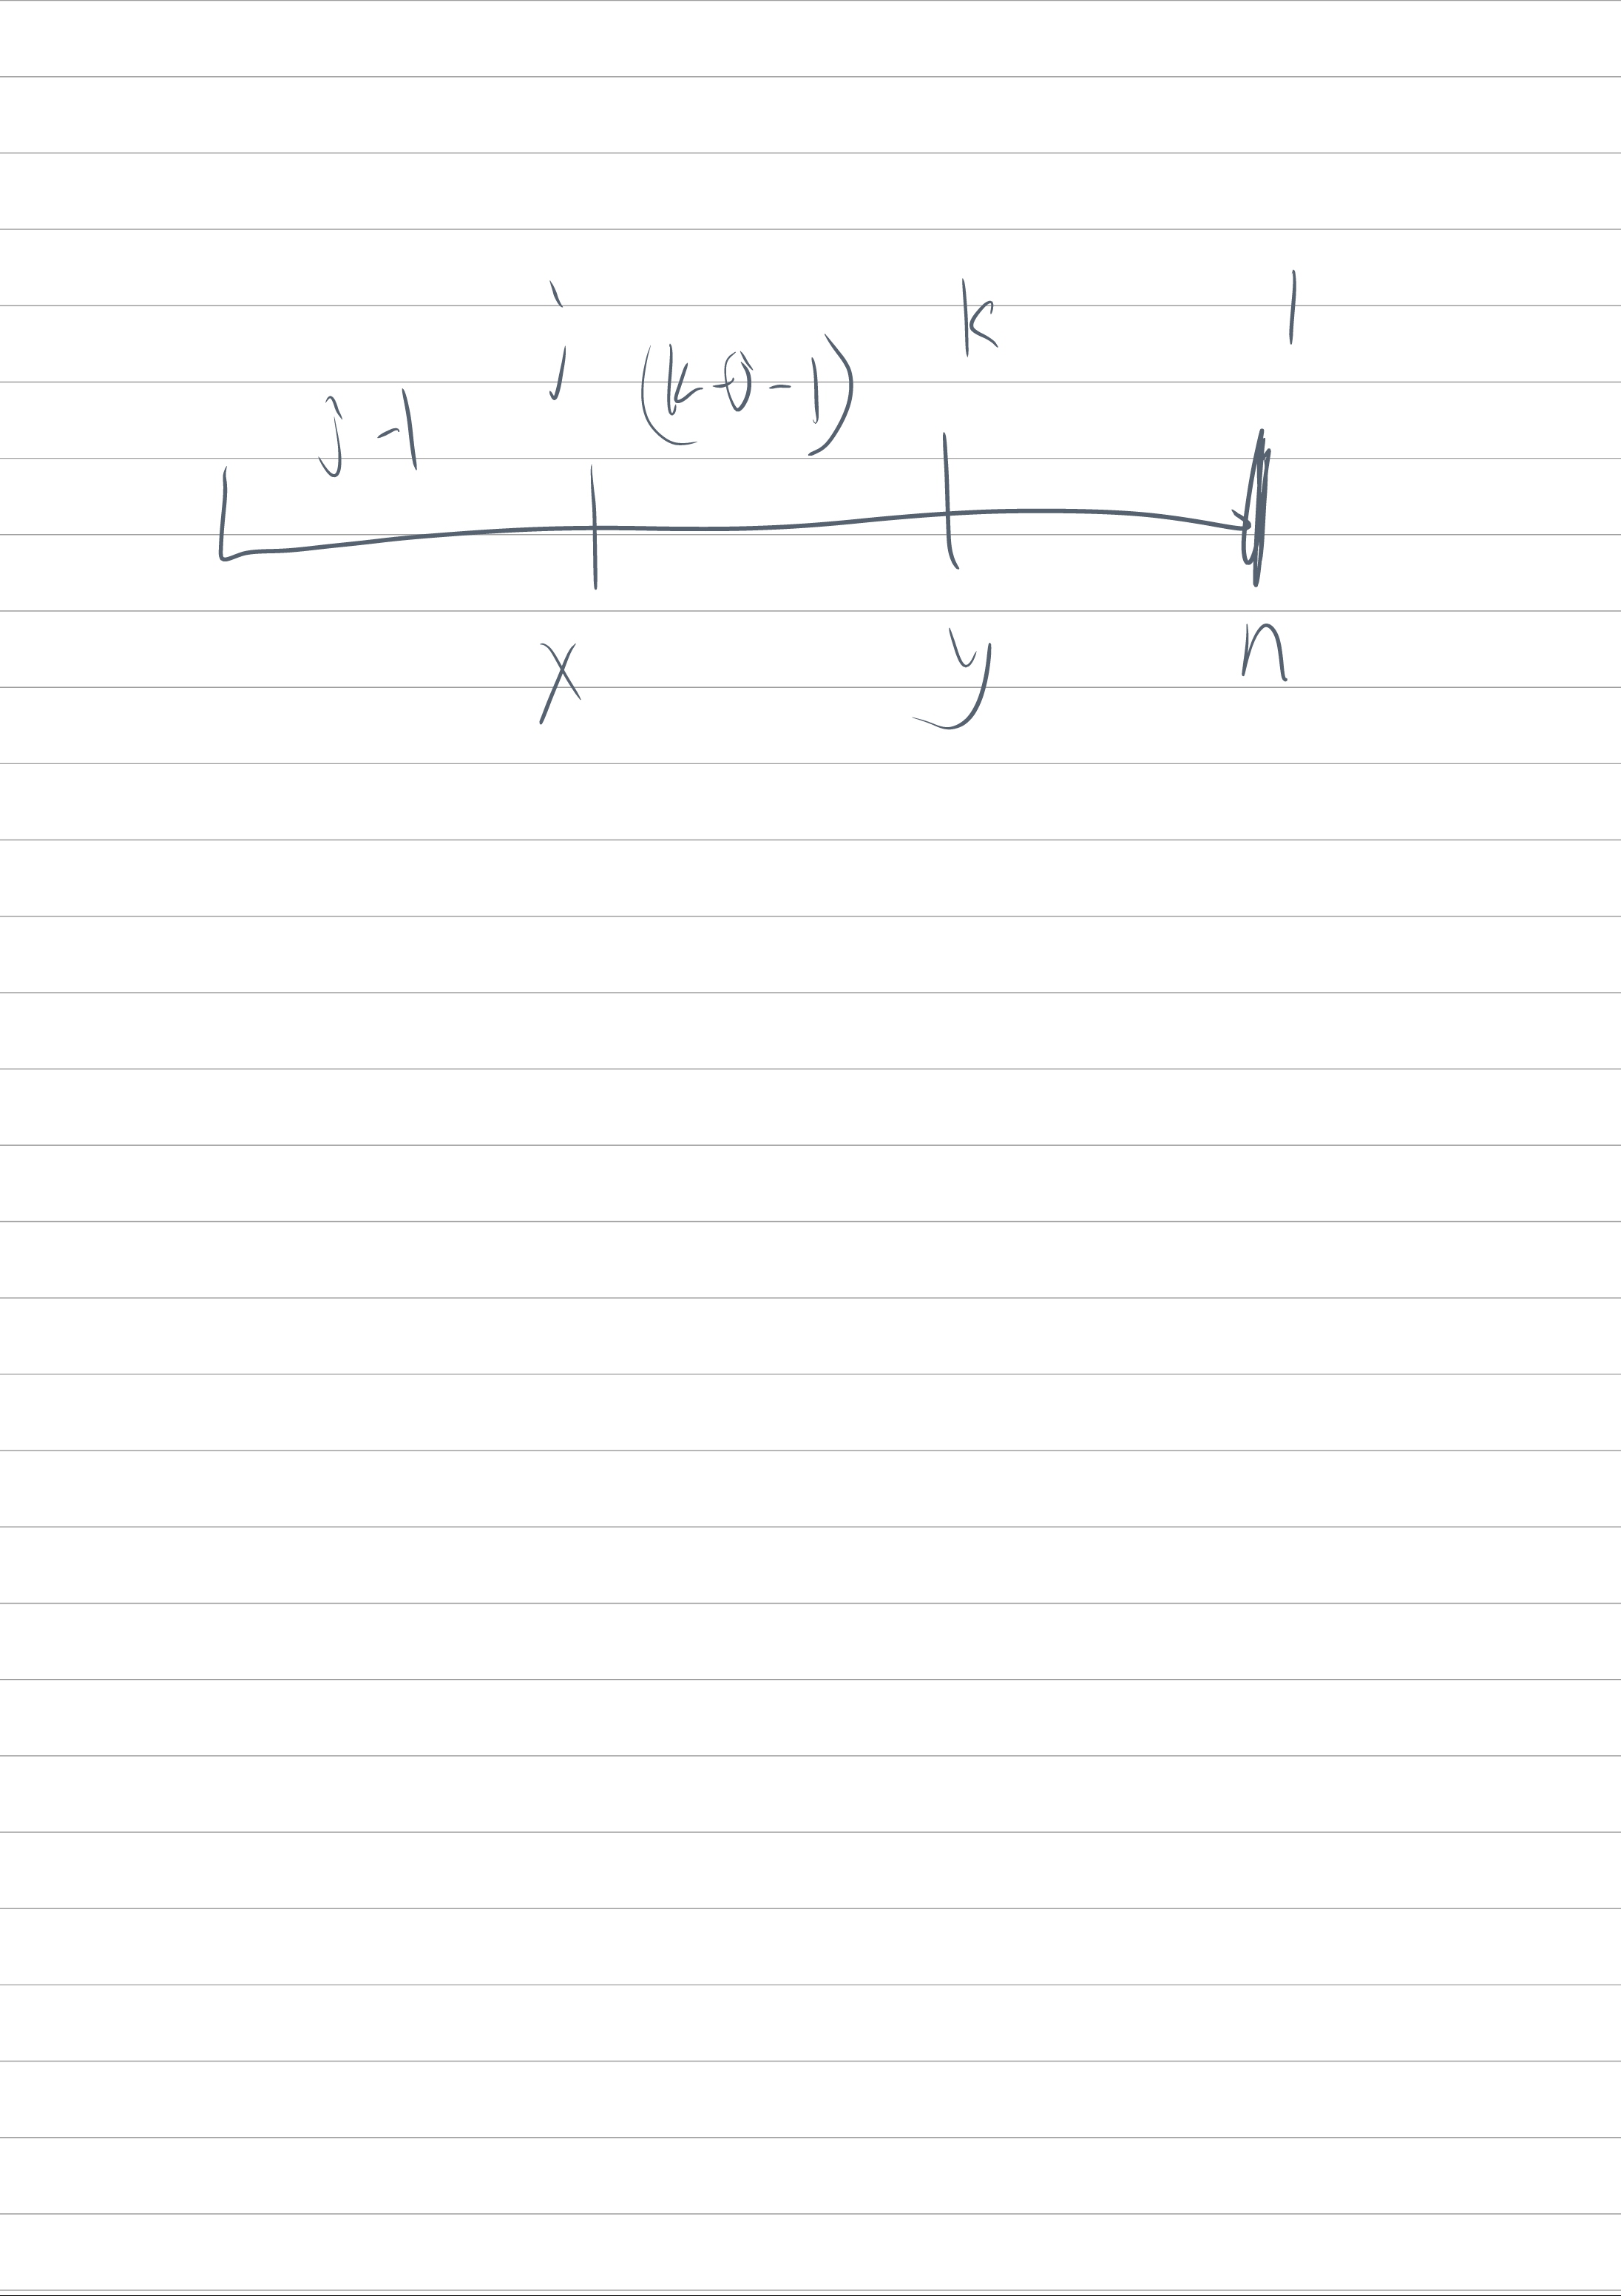 j k l
j-1 (k-j-1)
x y n